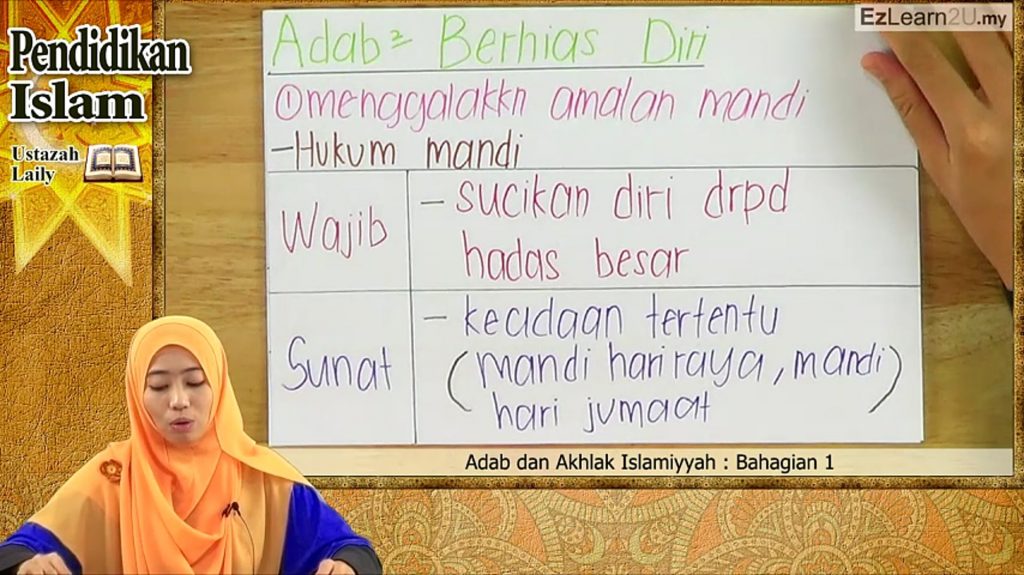 EzLearn2U.my
Pendidikan
Islam
Ustazah
Laily
Adab² Berhias Diri
① menggalakkn amalan mandi
- Hukum mandi
Wajib
- sucikan diri drpd
hadas besar
Sunat
- keadaan tertentu
(mandi hari raya, mandi)
hari jumaat
Adab dan Akhlak Islamiyyah : Bahagian 1